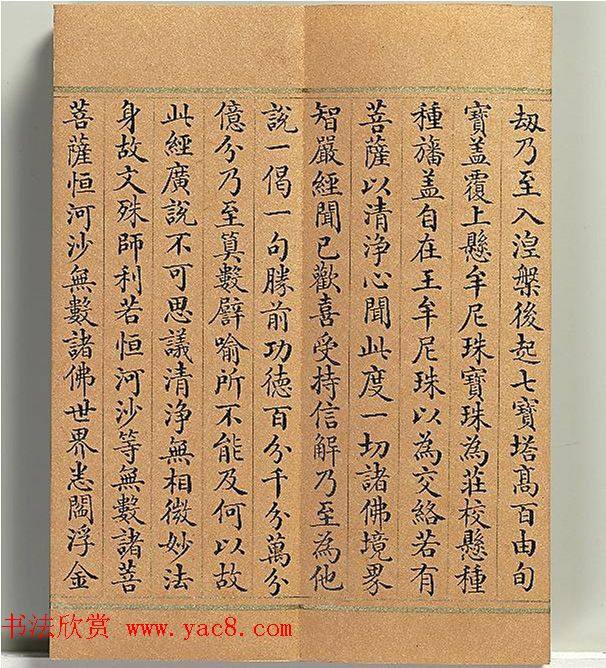 刼乃至入涅槃後起七寶塔髙百由旬
寶盖覆上懸牟尼珠寶珠為莊校懸種
種旛盖自在王牟尼珠以為交絡若有
菩薩以清淨心聞此度一切諸佛境界
智嚴經聞已歡喜受持信解乃至為他
說一偈一句勝前功德百分千分萬分
億分乃至算數譬喻所不能及何以故
此經廣說不可思議清淨無相微妙法
身故文殊師利若恒河沙等無數諸菩
菩薩恒河沙無數諸佛世界悉閻浮金
书法欣赏 www.yac8.com